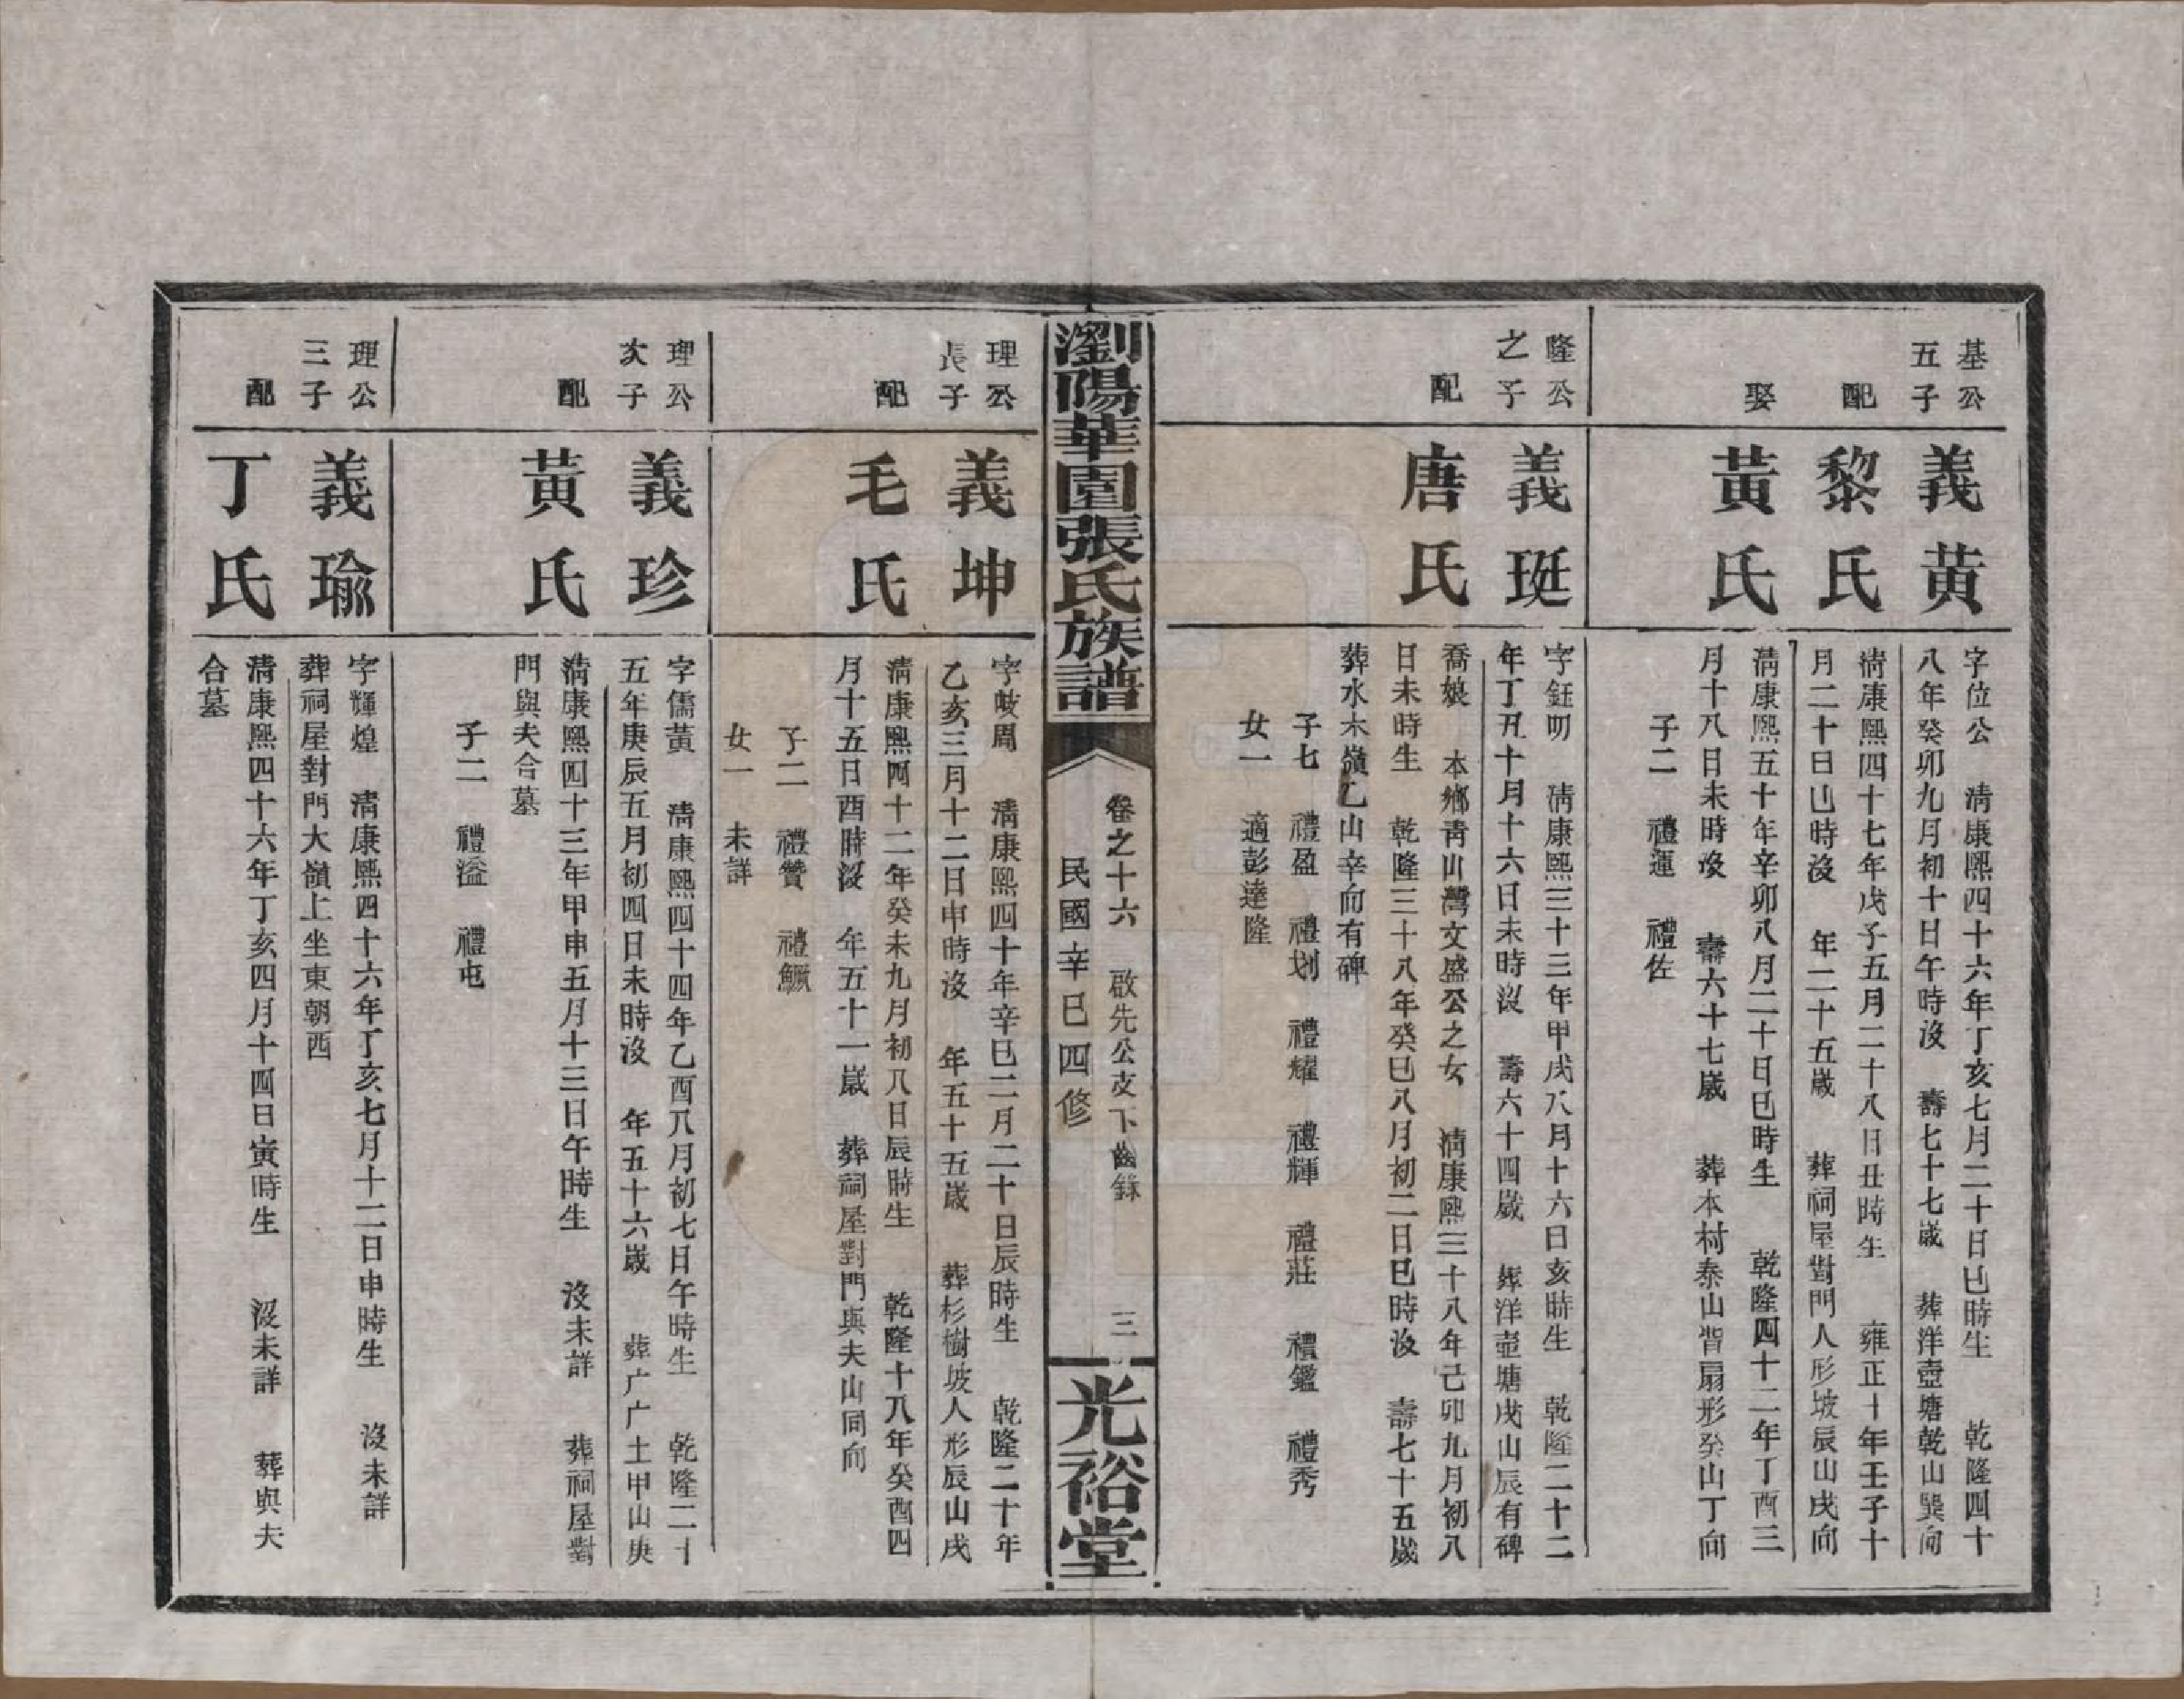 基公
五子
義黄
字位公　清康熙四十六年丁亥七月二十日巳時生　乾隆四十
八年癸卯九月初十日午時沒　壽七十七歲　葬洋壺塘乾山巽向
配
黎氏
清康熙四十七年戊子五月二十八日丑時生　雍正十年壬子十
月二十日山時沒　年二十五歲　葬祠屋對門人形坡辰山戌向
娶
黃氏
清康熙五十年辛卯八月二十日巳時生　乾隆四十二年丁酉三
月十八日未時沒　壽六十七歲　葬本村泰山背扇形癸山丁向
子二　禮運　禮佐
隆公
之子
義珽
字鈺明　清康熙三十三年甲戌八月十六日亥時生　乾隆二十二
年丁丑十月十六日未時沒　壽六十四歲　葬洋壺塘戌山辰有碑
配
唐氏
喬娘　本鄉青山灣文盛公之女　清康熙三十八年己卯九月初八
日未時生　乾隆三十八年癸巳八月初二日巳時沒　壽七十五歲
葬水木嶺乙山辛向有碑
子七　禮盈　禮划　禮耀　禮輝　禮莊　禮鑑　禮秀
女一　適彭達隆
瀏陽華園張氏族譜
卷之十六　啟先公支下齒錄　三
民國辛巳四修
光裕堂
理公
長子
義坤
字岐周　清康熙四十年辛巳二月二十日辰時生　乾隆二十年
乙亥三月十二日申時沒　年五十五歲　葬杉樹坡人形辰山戌
配
毛氏
清康熙四十二年癸未九月初八日辰時生　乾隆十八年癸酉四
月十五日酉時沒　年五十一歲　葬祠屋對門與夫山同向
子二　禮贊　禮鱖
女一　未詳
理公
次子
義珍
字儒黃　清康熙四十四年乙酉八月初七日午時生　乾隆二十
五年庚辰五月初四日未時沒　年五十六歲　葬广广土甲山庚
配
黃氏
清康熙四十三年甲申五月十三日午時生　沒未詳　葬祠屋對
門與夫合墓
子二　禮溢　禮屯
理公
三子
義瑜
字輝煌　清康熙四十六年丁亥七月十二日申時生　沒未詳
葬祠屋對門大嶺上坐東朝西
配
丁氏
清康熙四十六年丁亥四月十四日寅時生　沒未詳　葬與夫
合墓